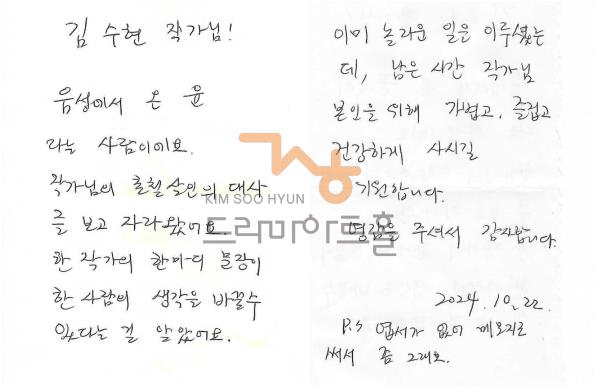 김 수현 작가님!
음성에서 온 윤
라는 사람이에요.
작가님의 촌철살인의 대사
를 보고 자라왔어요.
한 작가의 한마디 문장이
한 사람의 생각을 바꿀수
있다는 걸 알았어요.
이미 놀라운 일은 이루셨는
데, 남은 시간 작가님
본인을 위해 가볍고, 즐겁고
건강하게 사시길
기원합니다.
영감을 주셔서 감사합니다.
2024.10.22.
P.S 엽서가 없어 메모지로
써서 좀 그래요.
KIM SOO HYUN
드라마아트홀